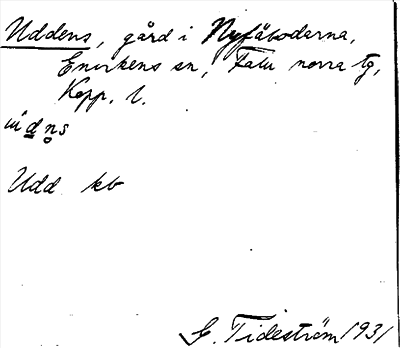 Uddens, gård i Nyfäboderna,
Envikens sn, Falu norra tg,
Kopp. l.
Udd kb
G. Tideström 1931